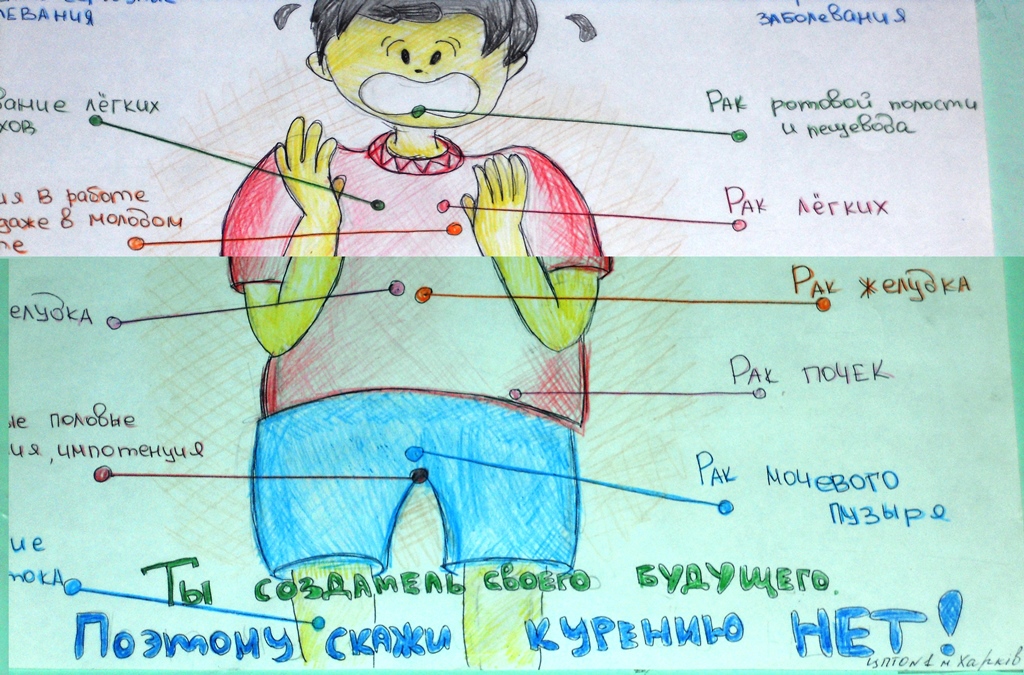 ЛЕВАНИЯ
заболевания
вание лёгких
хов
Рак ротовой полости
и пещевода
ия в работе
даже в молодом
те
Рак лёгких
елудка
Рак желудка
Рак почек
ые половые
ия, импотенция
Рак мочевого
пузыря
ие
тока
Ты создатель своего будущего.
Поэтому скажи курению НЕТ!
Харків